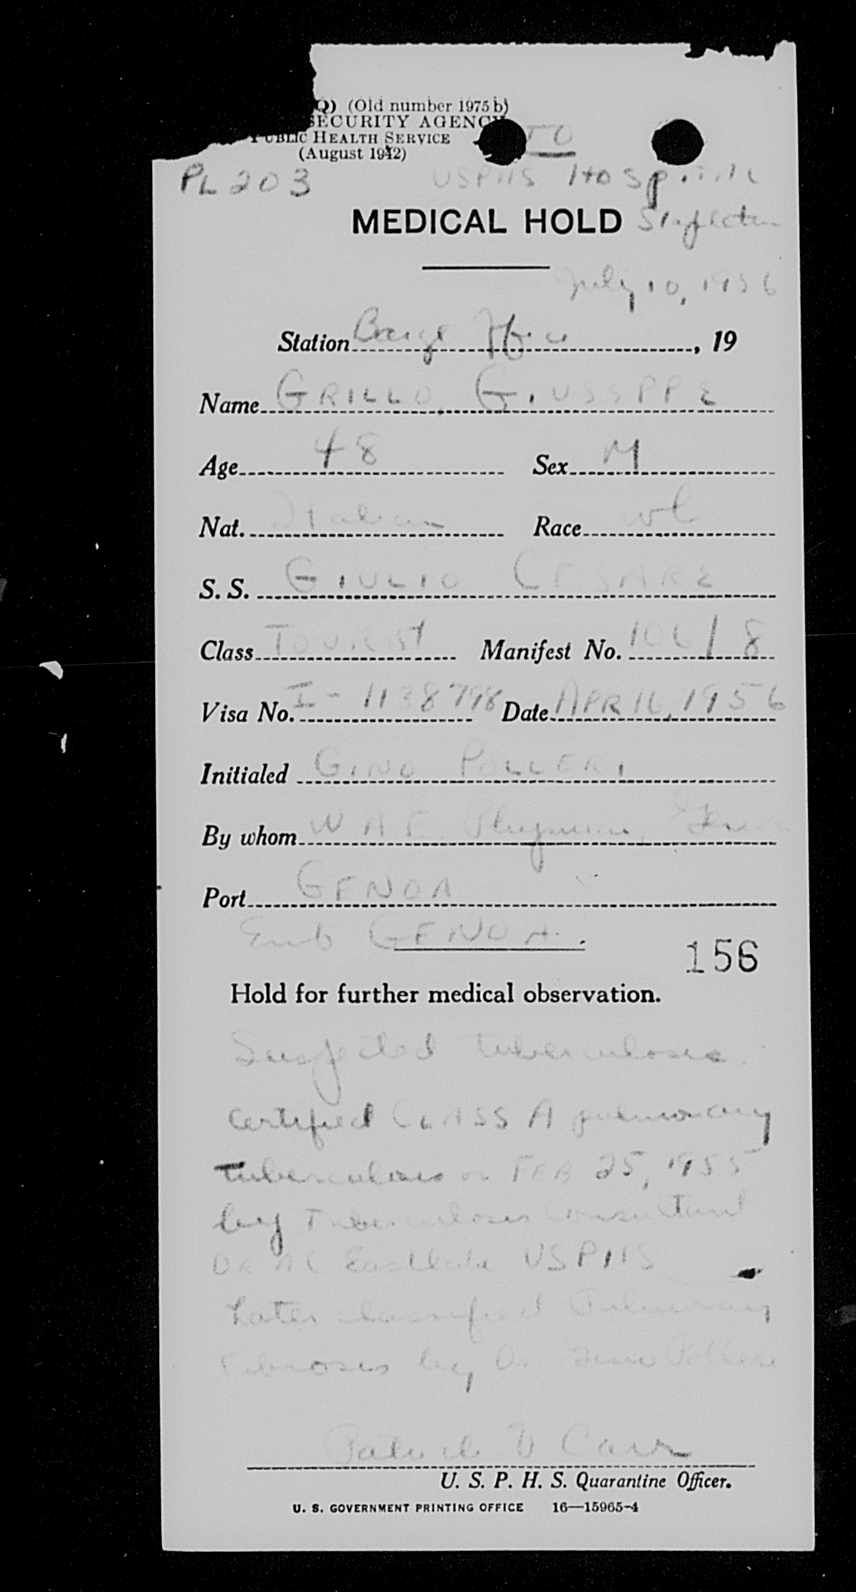 Q) (Old number 1975 b)
SECURITY AGENCY
PUBLIC HEALTH SERVICE TO
(August 1942)
PL 203 USPHS Hospital
MEDICAL HOLD Stapleton
July 10, 1956
Station Barge Office, 19
Name GRILLO, GIUSSPPE
Age 48 Sex M
Nat. Italian Race wh
S. S. GIULIO CESARE
Class TOURIST Manifest No. 106/8
Visa No. I-1138798 Date APR 16, 1956
Initialed GINO POLLERI
By whom
Port GENOA
Emb GENOA.
156
Hold for further medical observation.
Suspected tuberculosis.
Certified CLASS A pulmonary
tuberculosis on FEB 25, 1955
by Tuberculosis Consultant
DR Eastlake USPHS
Later classified Pulmonary
Fibrosis by Dr Polleri
Patrick V Carr
U. S. P. H. S. Quarantine Officer.
U. S. GOVERNMENT PRINTING OFFICE 16—15965-4